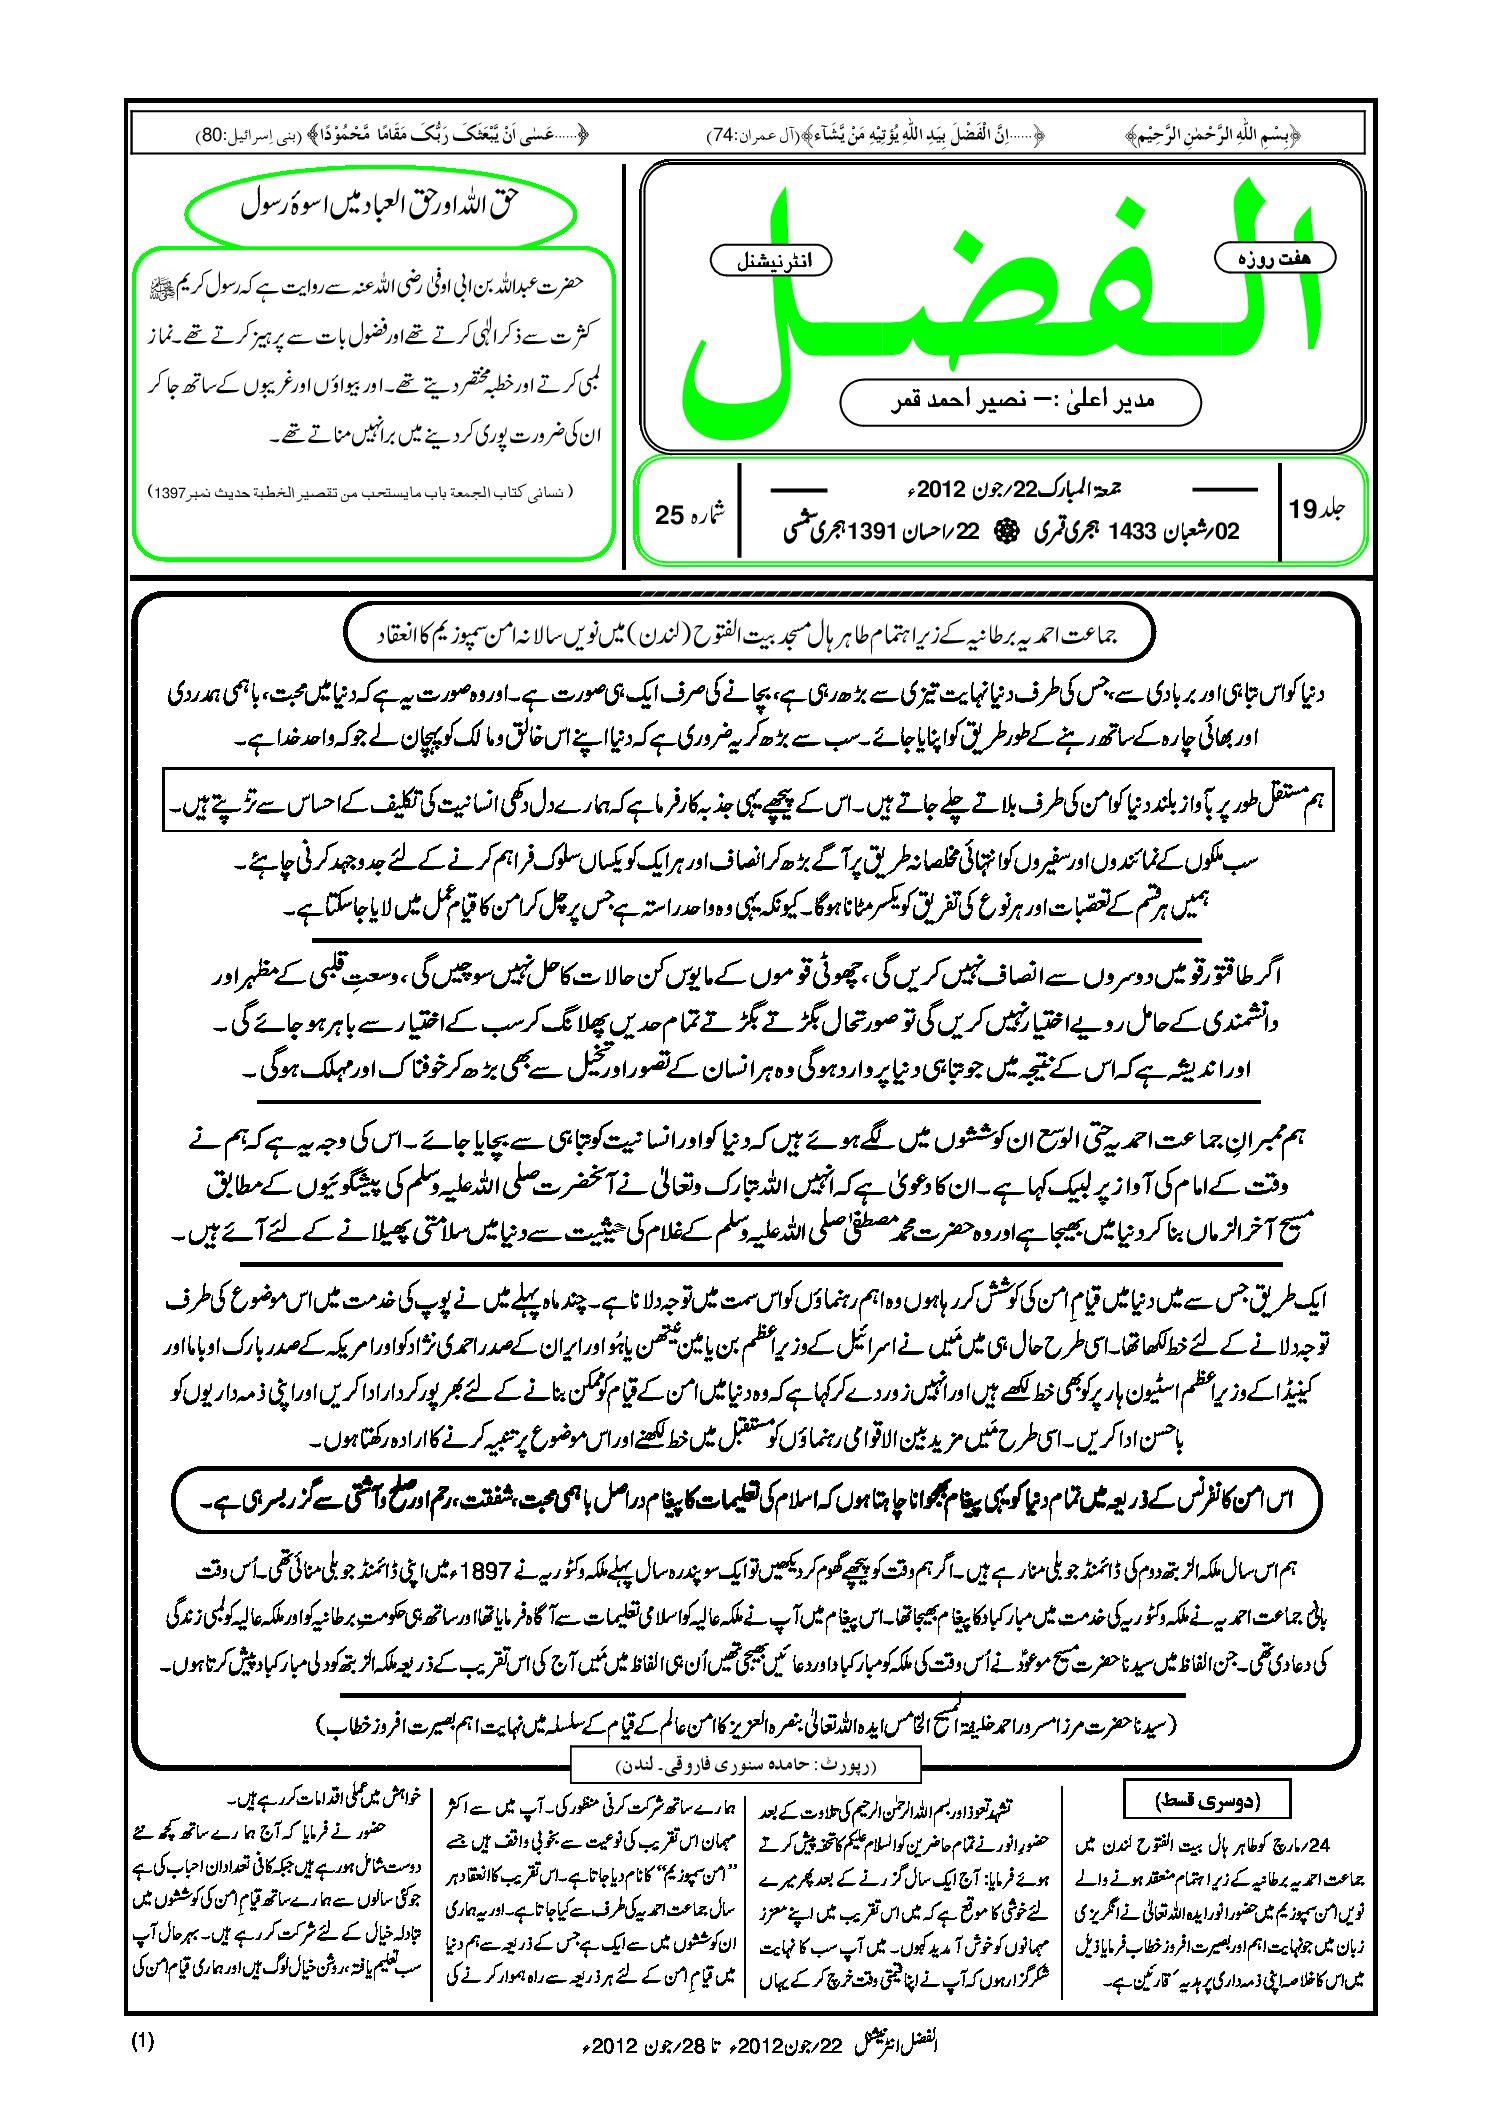 ﴿بِسْمِ اللهِ الرَّحْمٰنِ الرَّحِيْمِ﴾
﴿......اِنَّ الْفَضْلَ بِيَدِ اللهِ يُؤْتِيْهِ مَنْ يَّشَآء﴾(آل عمران:74)
﴿......عَسٰى اَنْ يَّبْعَثَكَ رَبُّكَ مَقَامًا مَّحْمُوْدًا﴾ (بنی اِسرائیل:80)
الفضل
ہفت روزہ
انٹرنیشنل
مدیر اعلیٰ :– نصیر احمد قمر
جلد 19
جمعۃ المبارک 22؍جون 2012ء
02؍شعبان 1433 ہجری قمری ۞ 22؍احسان 1391 ہجری شمسی
شمارہ 25
حق اللہ اور حق العباد میں اسوۂ رسول
حضرت عبداللہ بن ابی اوفیٰ رضی اللہ عنہ سے روایت ہے کہ رسول کریم ﷺ
کثرت سے ذکر الٰہی کرتے تھے اور فضول بات سے پرہیز کرتے تھے۔ نماز
لمبی کرتے اور خطبہ مختصر دیتے تھے۔ اور بیواؤں اور غریبوں کے ساتھ جا کر
ان کی ضرورت پوری کر دینے میں برا نہیں مناتے تھے۔
( نسائی کتاب الجمعة باب مایستحب من تقصیر الخطبة حدیث نمبر1397)
جماعت احمدیہ برطانیہ کے زیر اہتمام طاہر ہال مسجد بیت الفتوح (لندن) میں نویں سالانہ امن سمپوزیم کا انعقاد
دنیا کو اس تباہی اور بربادی سے، جس کی طرف دنیا نہایت تیزی سے بڑھ رہی ہے، بچانے کی صرف ایک ہی صورت ہے۔ اور وہ صورت یہ ہے کہ دنیا میں محبت، باہمی ہمدردی
اور بھائی چارہ کے ساتھ رہنے کے طور طریق کو اپنایا جائے۔ سب سے بڑھ کر یہ ضروری ہے کہ دنیا اپنے اس خالق و مالک کو پہچان لے جو کہ واحد خدا ہے۔
ہم مستقل طور پر بآواز بلند دنیا کو امن کی طرف بلاتے چلے جاتے ہیں۔ اس کے پیچھے یہی جذبہ کار فرما ہے کہ ہمارے دل دکھی انسانیت کی تکلیف کے احساس سے تڑپتے ہیں۔
سب ملکوں کے نمائندوں اور سفیروں کو انتہائی مخلصانہ طریق پر آگے بڑھ کر انصاف اور ہر ایک کو یکساں سلوک فراہم کرنے کے لئے جدوجہد کرنی چاہئے۔
ہمیں ہر قسم کے تعصّبات اور ہر نوع کی تفریق کو یکسر مٹانا ہوگا۔ کیونکہ یہی وہ واحد راستہ ہے جس پر چل کر امن کا قیام عمل میں لایا جا سکتا ہے۔
اگر طاقتور قومیں دوسروں سے انصاف نہیں کریں گی، چھوٹی قوموں کے مایوس کن حالات کا حل نہیں سوچیں گی، وسعتِ قلبی کے مظہر اور
دانشمندی کے حامل رویے اختیار نہیں کریں گی تو صورتحال بگڑتے بگڑتے تمام حدیں پھلانگ کر سب کے اختیار سے باہر ہو جائے گی۔
اور اندیشہ ہے کہ اس کے نتیجہ میں جو تباہی دنیا پر وارد ہوگی وہ ہر انسان کے تصور اور تخیل سے بھی بڑھ کر خوفناک اور مہلک ہوگی۔
ہم ممبرانِ جماعت احمدیہ حتی الوسع ان کوششوں میں لگے ہوئے ہیں کہ دنیا کو اور انسانیت کو تباہی سے بچایا جائے۔ اس کی وجہ یہ ہے کہ ہم نے
وقت کے امام کی آواز پر لبیک کہا ہے۔ ان کا دعویٰ ہے کہ انہیں اللہ تبارک وتعالیٰ نے آنحضرت صلی اللہ علیہ وسلم کی پیشگوئیوں کے مطابق
مسیح آخر الزماں بنا کر دنیا میں بھیجا ہے اور وہ حضرت محمد مصطفیٰ صلی اللہ علیہ وسلم کے غلام کی حیثیت سے دنیا میں سلامتی پھیلانے کے لئے آئے ہیں۔
ایک طریق جس سے میں دنیا میں قیامِ امن کی کوشش کر رہا ہوں وہ اہم رہنماؤں کو اس سمت میں توجہ دلانا ہے۔ چند ماہ پہلے میں نے پوپ کی خدمت میں اس موضوع کی طرف
توجہ دلانے کے لئے خط لکھا تھا۔ اسی طرح حال ہی میں مَیں نے اسرائیل کے وزیر اعظم بن یامین نیتھن یاہُو اور ایران کے صدر احمدی نژاد کو اور امریکہ کے صدر بارک اوباما اور
کینیڈا کے وزیر اعظم اسٹیون ہارپر کو بھی خط لکھے ہیں اور انہیں زور دے کر کہا ہے کہ وہ دنیا میں امن کے قیام کو ممکن بنانے کے لئے بھرپور کردار ادا کریں اور اپنی ذمہ داریوں کو
باحسن ادا کریں۔ اسی طرح مَیں مزید بین الاقوامی رہنماؤں کو مستقبل میں خط لکھنے اور اس موضوع پر تنبیہ کرنے کا ارادہ رکھتا ہوں۔
اس امن کانفرنس کے ذریعہ میں تمام دنیا کو یہی پیغام بھجوانا چاہتا ہوں کہ اسلام کی تعلیمات کا پیغام دراصل باہمی محبت، شفقت، رحم اور صلح و آشتی سے گزر بسر ہی ہے۔
ہم اس سال ملکہ الزبتھ دوم کی ڈائمنڈ جوبلی منا رہے ہیں۔ اگر ہم وقت کو پیچھے گھوم کر دیکھیں تو ایک سو پندرہ سال پہلے ملکہ وکٹوریہ نے 1897ء میں اپنی ڈائمنڈ جوبلی منائی تھی۔ اُس وقت
بانیٔ جماعت احمدیہ نے ملکہ وکٹوریہ کی خدمت میں مبارکباد کا پیغام بھیجا تھا۔ اس پیغام میں آپ نے ملکہ عالیہ کو اسلامی تعلیمات سے آگاہ فرمایا تھا اور ساتھ ہی حکومتِ برطانیہ کو اور ملکہ عالیہ کو لمبی زندگی
کی دعا دی تھی۔ جن الفاظ میں سیدنا حضرت مسیح موعودؑ نے اُس وقت کی ملکہ کو مبارکباد اور دعائیں بھیجی تھیں اُن ہی الفاظ میں مَیں آج کی اس تقریب کے ذریعہ ملکہ الزبتھ کو دلی مبارکباد پیش کرتا ہوں۔
(سیدنا حضرت مرزا مسرور احمد خلیفۃ المسیح الخامس ایدہ اللہ تعالیٰ بنصرہ العزیز کا امن عالم کے قیام کے سلسلہ میں نہایت اہم بصیرت افروز خطاب)
(رپورٹ: حامدہ سنوری فاروقی۔ لندن)
(دوسری قسط)
24؍مارچ کو طاہر ہال بیت الفتوح لندن میں
جماعت احمدیہ برطانیہ کے زیر اہتمام منعقد ہونے والے
نویں امن سمپوزیم میں حضور انور ایدہ اللہ تعالیٰ نے انگریزی
زبان میں جو نہایت اہم اور بصیرت افروز خطاب فرمایا ذیل
میں اس کا خلاصہ اپنی ذمہ داری پر ہدیۂ قارئین ہے۔
تشہد تعوذ اور بسم اللہ الرحمٰن الرحیم کی تلاوت کے بعد
حضورِ انور نے تمام حاضرین کو السلام علیکم کا تحفہ پیش کرتے
ہوئے فرمایا: آج ایک سال گزرنے کے بعد پھر میرے
لئے خوشی کا موقع ہے کہ میں اس تقریب میں اپنے معزز
مہمانوں کو خوش آمدید کہوں۔ میں آپ سب کا نہایت
شکر گزار ہوں کہ آپ نے اپنا قیمتی وقت خرچ کر کے یہاں
ہمارے ساتھ شرکت کرنی منظور کی۔ آپ میں سے اکثر
مہمان اس تقریب کی نوعیت سے بخوبی واقف ہیں جسے
”امن سمپوزیم“ کا نام دیا جاتا ہے۔ اس تقریب کا انعقاد ہر
سال جماعت احمدیہ کی طرف سے کیا جاتا ہے۔ اور یہ ہماری
ان کوششوں میں سے ایک ہے جس کے ذریعہ سے ہم دنیا
میں قیامِ امن کے لئے ہر ذریعہ سے راہ ہموار کرنے کی
خواہش میں عملی اقدامات کر رہے ہیں۔
حضور نے فرمایا کہ آج ہمارے ساتھ کچھ نئے
دوست شامل ہو رہے ہیں جبکہ کافی تعداد ان احباب کی ہے
جو کئی سالوں سے ہمارے ساتھ قیامِ امن کی کوششوں میں
تبادلہ خیال کے لئے شرکت کر رہے ہیں۔ بہرحال آپ
سب تعلیم یافتہ، روشن خیال لوگ ہیں اور ہماری قیامِ امن کی
الفضل انٹرنیشنل 22؍جون2012ء تا 28؍جون 2012ء
(1)